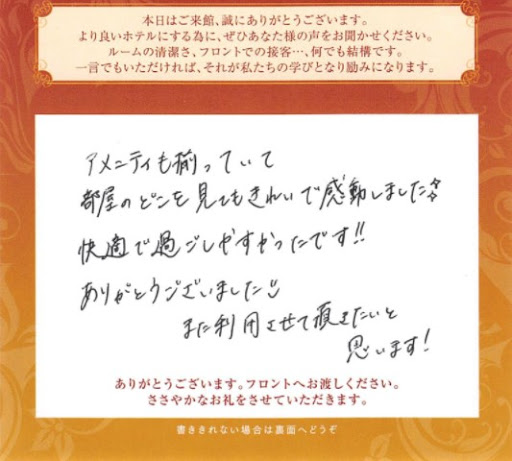 本日はご来館、誠にありがとうございます。
より良いホテルにする為に、ぜひあなた様の声をお聞かせください。
ルームの清潔さ、フロントでの接客…、何でも結構です。
一言でもいただければ、それが私たちの学びとなり励みになります。
アメニティも揃っていて
部屋のどこを見てもきれいで感動しました
快適で過ごしやすかったです!!
ありがとうございました
また利用させて頂きたいと
思います!
ありがとうございます。フロントへお渡しください。
ささやかなお礼をさせていただきます。
書ききれない場合は裏面へどうぞ